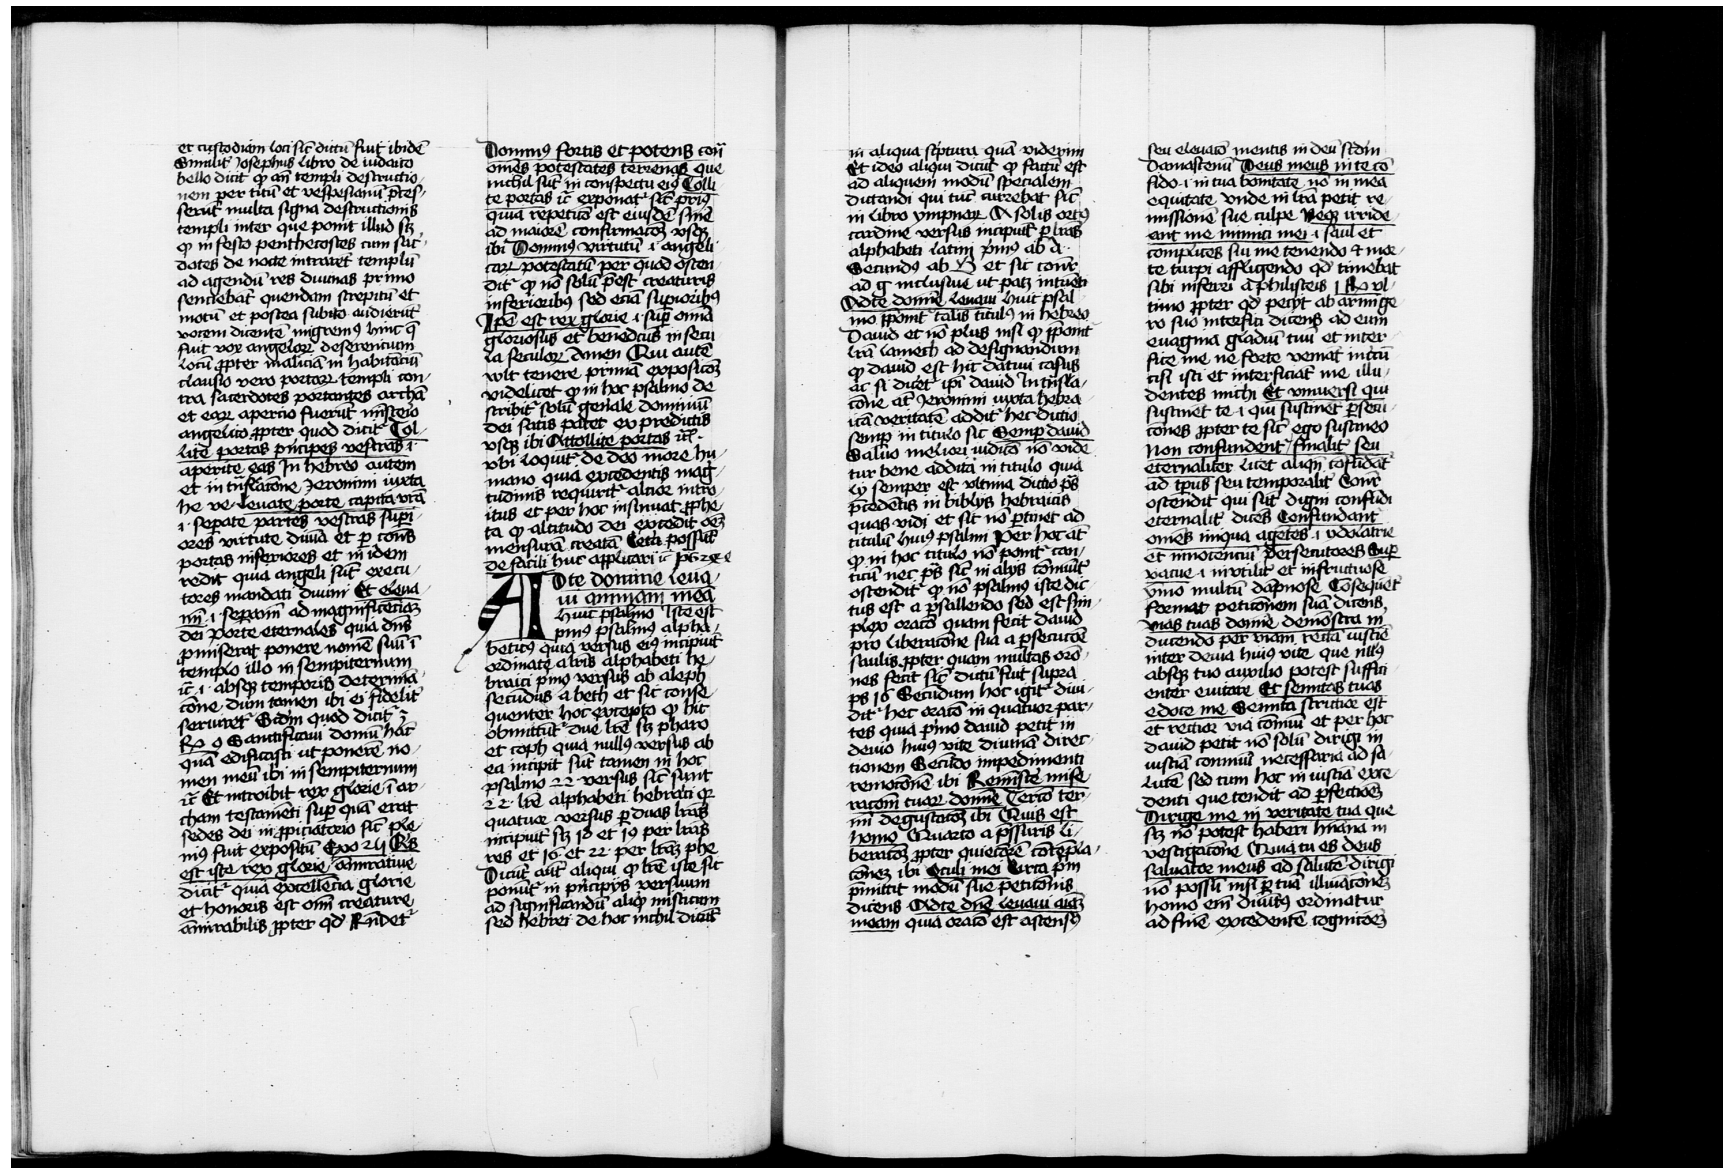 et custodiam loci sic̄ dictū fuit ibidē
Similit̄ Josephus libro de iudaico
bello dicit qꝫ an̄ templi destructio-
nem per titū et vespesianū p̄ces-
serūt multa signa destructionis
templi inter que ponit illud sꝫ
qꝫ in festo penthecostes cum sac̄-
dotes de nocte intrarēt templū
ad agendū res diuinas primo
senciebāt quendam strepitū et
motū et postea subito audierūt
vocem dicentē migremꝰ hinc q̄
fuit vox angeloꝝ deserentium
locū ꝓpter maliciā in habitāciū
clausio vero portaꝝ templi con-
tra sacerdotes portantes archā
et eaꝝ apercio fuerūt mīsterio
angelico ꝓpter quod dicit̄ Tol-
lite portas pͥncipes vestras ·i·
aperite eas In hebreo autem
et in trāslacōne Jeronimi iuxta
he ve· leuate porte capita vr̄a
·i· sepate partes vestras supi-
ores virtute diuīa et ꝑ cōns
portas inferiores et in idem
redit quia angeli sūt execu-
tores mandati diuini Et eleua-
mī ·i· separamī ad magnificēciaꝫ
dei porte eternales quia dn̄s
ꝓmiserat ponere nomē suū ī
templo illo in sempiternum
ic̄ ·i· absqꝫ temporis determina-
cōne· dum tamen ibi ei fidelit̄
seruiret̄ Scdm̄ quod dicit̄ ꝫ
Rͦ 9 Sanctificaui domū hāc
quā edificasti ut ponerē no-
men meū ibi in sempiternum
ic̄ Et introibit rex glorie ī ar-
cham testamēti sup̄ quā erat
sedes dei in ꝓpiciatorio sic̄ ple-
niꝰ fuit expositū Exo 25 Qꝫs
est iste rex glorie· āmiratiue
dicit̄ quia excellēcia glorie
et honoris est om̄i creature
āmirabilis ꝓpter qd̄ Rn̄det̄
Dominꝰ fortis et potens cōtͣ
omēs potestates terrenas que
nichil sūt in conspectu eiꝰ Tolli
te portas ic̄ exponat̄ sic̄ priꝰ
quia repeticō est eiusdē sn̄ie
ad maiorē confirmacōꝫ vsqꝫ
ibi Dominꝰ virtutū ·i· angeli
caꝝ potestatū per quod osten-
dit̄ qꝫ nō solū p̄est creaturis
inferioribꝰ sed eciā supioribꝰ
Ipē est rex glorie ·i· sup̄ omīa
gloriosus et benedictus in secu
la seculoꝝ Amen Qui autē
vult tenere primā exposicōꝫ
videlicet qꝫ in hoc psalmo de
scribit̄ solū gēnale dominiū
dei satis patet ex predictis
vsqꝫ ibi Attollite portas ic̄·
vbi loquit̄ de deo more hu-
mano quia excedentis mag-
nitudinis requirit̄ altior intro-
itus et per hoc insinuat ꝓphe
ta qꝫ altitudo dei excedit oēꝫ
mensurā creatā Cetā possūt
de facili huc applicari ic̄ ps 24
ADte domine leua-
ui animam meā
huic psalmo Iste est
pͥmꝰ psalmꝰ alpha-
beticꝰ quia versus eiꝰ incipiūt
ordinate a lr̄is alphabeti he-
braici pͥmo versus ab aleph
secundus a beth et sic conse-
quenter hoc excepto qꝫ hic
obmittūt̄ due lr̄e sꝫ pharo
et coph quia nullꝰ versus ab
ea incipit sūt tamen in hoc
psalmo 22 versus sic̄ sunt
22 lr̄e alphabeti hebraici qꝫ
quatuor versus ꝑ duas lr̄as
incipiūt sꝫ 18 et 19 per lr̄as
res et 16 et 22 per lr̄aꝫ phe
Dicūt aūt aliqui qꝫ lr̄e iste sic
ponūt̄ in pͥncipijs versuum
ad significandū aliqd̄ misticum
sed hebrei de hoc nichil dicūt
in aliqua scͥptura quā viderim
Et ideo aliqui dicūt qꝫ factū est
ad aliquem modū specialem
dictandi qui tūc currebat sic̄
in libro ympnoꝝ A solis ortꝰ
cardine versus incipiūt ꝑ lr̄as
alphabeti latini pͥmꝰ ab a·
Secundꝰ ab B et sic cōnr̄
ad g inclusiue ut patꝫ intuēti
Adte domīe leuaui huic psal-
mo p̄ponit̄ talis titulꝰ in hebreo
Dauid et nō plus nisi qꝫ p̄ponit̄
lr̄a lamech ad designandum
qꝫ dauid est hic datiui casus
ac si dicet̄ ipī dauid In trāsla-
cōne aūt Jeronimi iuxta hebra-
icā veritatē addit̄ hec dictio
semp̄ in titulo sic Semp̄ dauid
Saluo meliori iudicō nō vide-
tur bene addita in titulo quia
ly semper est vltima dictio p̄s
p̄cedētis in biblijs hebraicis
quas vidi et sic nō ꝑtinet ad
titulū huiꝰ psalmi Per hoc aūt
qꝫ in hoc titulo nō ponit̄ can-
ticū nec p̄s sic̄ in alijs cōmūit̄
ostendit̄ qꝫ nō psalmꝰ iste dic-
tus est a psallendo sed est sim-
plex oracō quam fecit dauid
pro liberacōne sua a ꝑsecucōe
saulis ꝓpter quam multas orō-
nes fecit sic̄ dictū fuit supra
ps 16 Secūdum hoc igit̄ diui-
dit̄ hec oracō in quatuor par-
tes quia pͥmo dauid petit in
deuio huiꝰ vite diuinā direc-
tionem Secūdo impedimenti
remocōnē ibi Reminiscē mise-
racōnū tuaꝝ domīe Tercō eter-
ni degustacōꝫ ibi Quis est
homo Quarto a p̄ssuris li-
beracōꝫ ꝓpter quietiorē cōtēpla-
cōneꝫ ibi Oculi mei Circa pͥm
p̄mittit modū sue peticōnis
dicens Adte dn̄e leuaui aiāꝫ
meam quia oracō est ascensꝰ
seu eleuacō mentis in deū scdm̄
Damascenū Deus meus in te cō
fido ·i· in tua bonitate nō in mea
equitate vnde in lr̄a petit re-
missionē sue culpe Neqꝫ irride-
ant me inimici mei ·i· saul et
complices sui me tenendo ⁊ mor-
te turpi affligendo qd̄ timebat
sibi inferri a philisteis 1 Rͦ vl-
timo ꝓpter qd̄ pecijt ab armige-
ro suo interfici dicens ad eum
euagina gladiū tuū et inter-
fice me ne forte veniāt incircū-
cisi isti et interficiāt me illu-
dentes michi Et vniuersi qui
sustinēt te ·i· qui sustinēt ꝑsecu-
cōnes ꝓpter te sic̄ ego sustineo
Non confundent̄ finalit̄ seu
eternaliter licet aliqn̄ cōfūdāt̄
ad tp̄us seu temporalit̄ Cōnr̄
ostendit̄ qui sūt digni confūdi
eternalit̄ dicēs Confundant̄
omēs iniqua agētes ·i· ydolatrie
et innocencium persecutores Sup̄
vacue ·i· inutilit̄ et infructuose
ymo multū dāpnose Cōsequēt̄
format peticōnem suā dicens
vias tuas domīe demōstra m
ducendo per viam recta iusticie
inter deuia huiꝰ vite que nullꝰ
absqꝫ tuo auxilio potest suffici
enter euitare Et semitas tuas
edoce me Semita strictior est
et rectior via cōmūi et per hoc
dauid petit nō solū dirigi in
iusticia cōmūi necessaria ad sa-
lutē sed cum hoc in iusticia exce-
denti que tendit ad ꝑfectiōeꝫ
Dirige me in veritate tua que
sꝫ nō potest haberi hūana in
vestigacōne Quia tu es deus
saluator meus ad salutē dirigi
nō possū nisi ꝑ tuā illuīacōneꝫ
homo em̄ diuitꝰ ordinatur
ad finē excedentē cognicōeꝫ